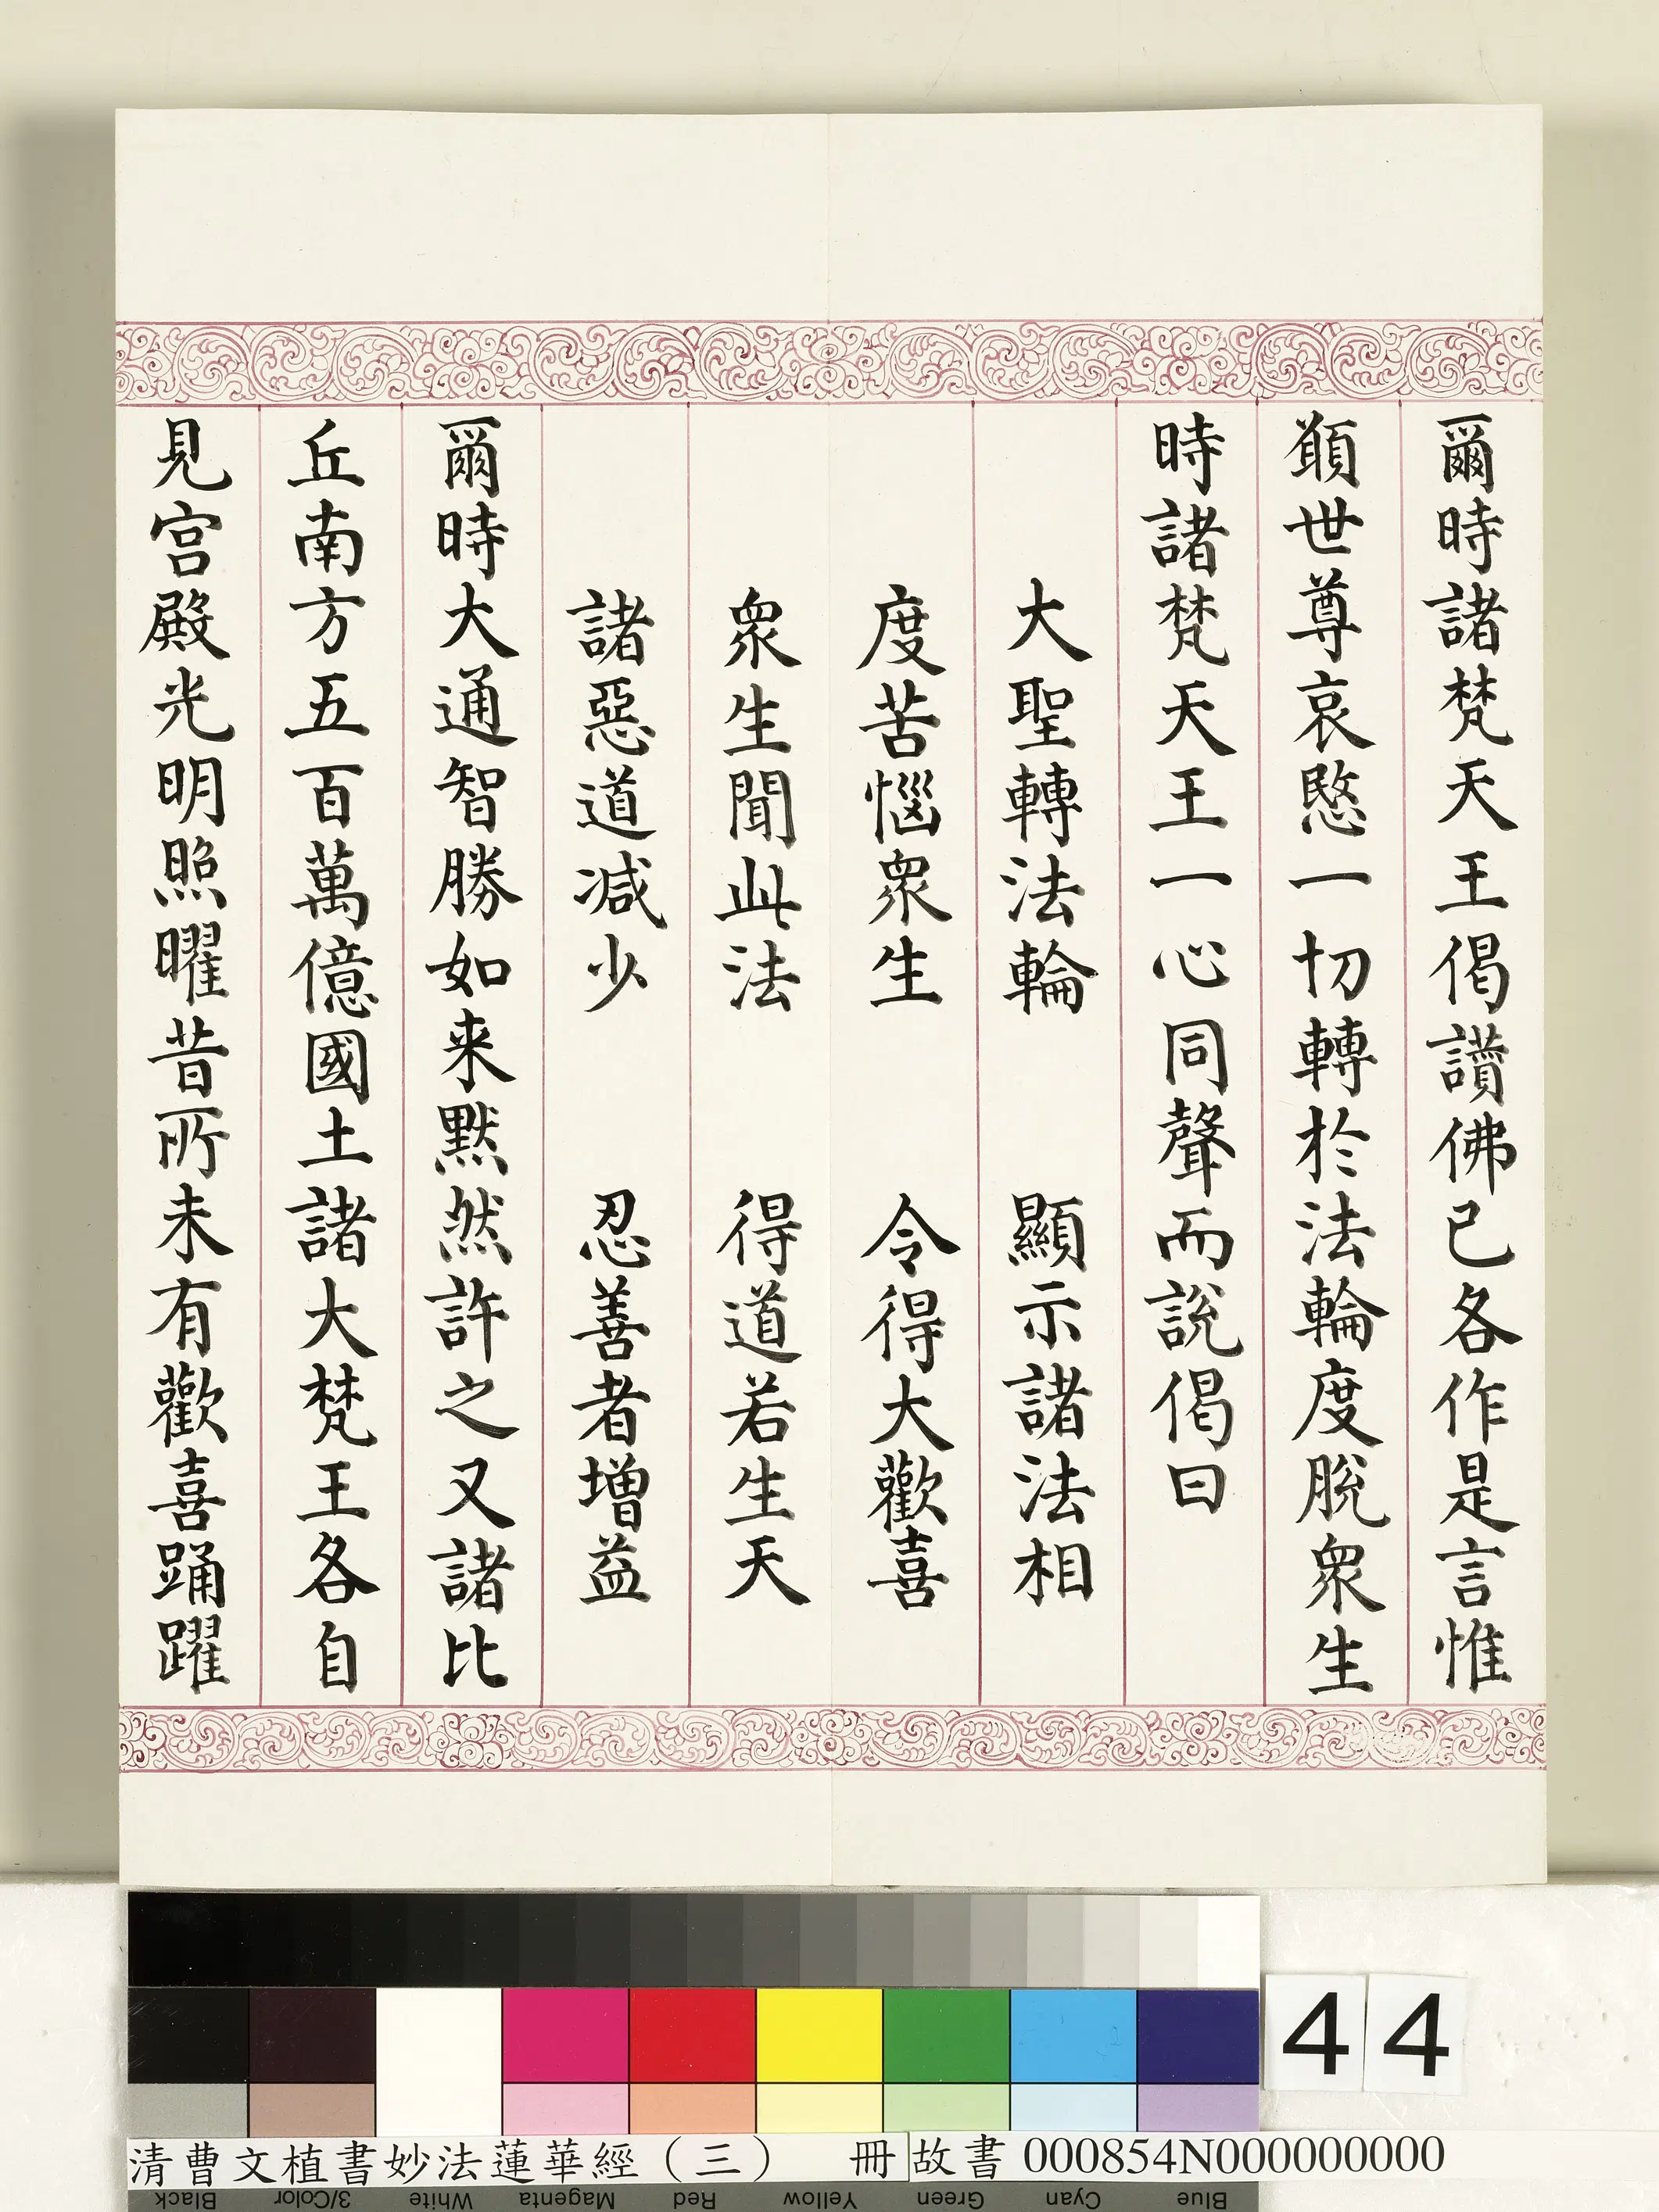 爾時諸梵天王偈讚佛已各作是言惟
願世尊哀愍一切轉於法輪度脫衆生
時諸梵天王一心同聲而說偈曰
大聖轉法輪　顯示諸法相
度苦惱衆生　令得大歡喜
衆生聞此法　得道若生天
諸惡道減少　忍善者增益
爾時大通智勝如来默然許之又諸比
丘南方五百萬億國土諸大梵王各自
見宮殿光明照曜昔所未有歡喜踊躍
44
清曹文植書妙法蓮華經（三）　冊　故書 000854N000000000
Black 3/Color White Magenta Red Yellow Green Cyan Blue